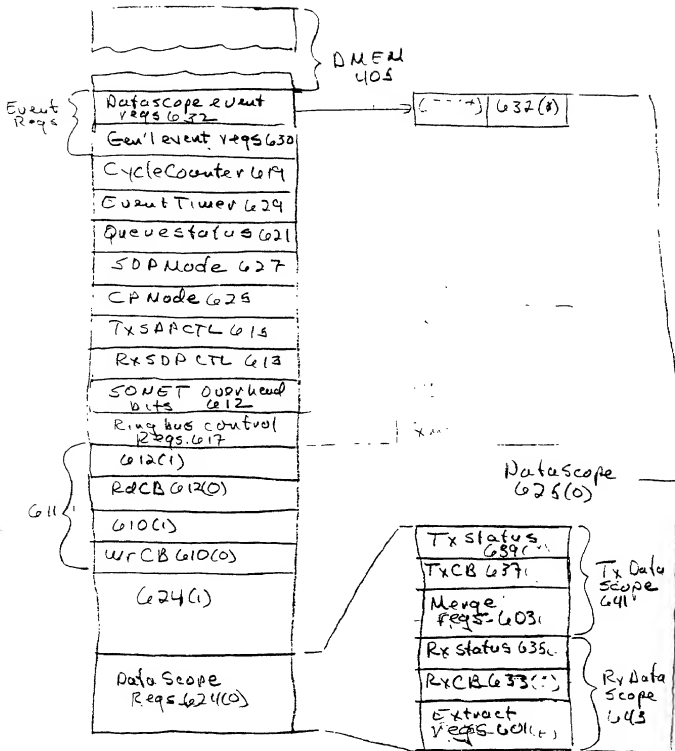 DMEM
405
Event
Regs
Datascope event
regs 632
632(0)
Gen'l event regs 630
CycleCounter 619
EventTimer 629
Queuestatus 621
SDPMode 627
CPMode 625
TxSDPCTL 615
RxSDPCTL 613
SONET Overhead
bits 612
Ring bus control
Regs. 617
611
612(1)
RdCB 612(0)
610(1)
WrCB 610(0)
624(1)
DataScope
Regs 624(0)
DataScope
625(0)
Tx Status
639
TxCB 637
Merge
regs 603
Tx Data
Scope
641
Rx Status 635
RxCB 633
Extract
regs 601
Rx Data
Scope
643